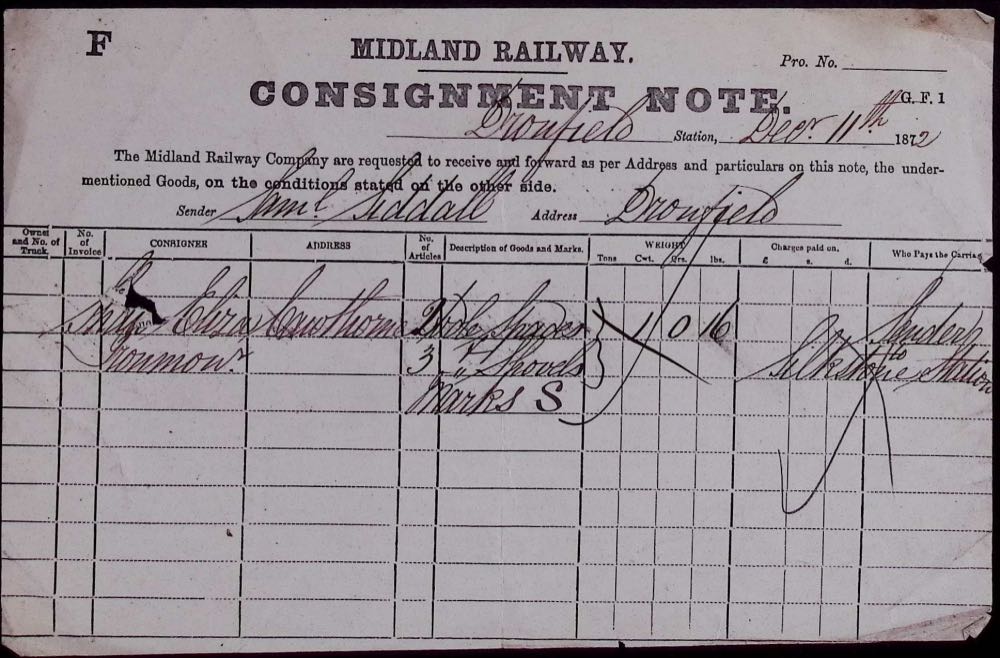 F
MIDLAND RAILWAY.
Pro. No.
CONSIGNMENT NOTE.
G. F. 1
Dronfield Station, Decr 11th 1872
The Midland Railway Company are requested to receive and forward as per Address and particulars on this note, the under-
mentioned Goods, on the conditions stated on the other side.
Sender Saml Siddall Address Dronfield
Owner and No. of Truck. No. of Invoice CONSIGNEE ADDRESS No. of Articles Description of Goods and Marks. WEIGHT Tons Cwt. Qrs. lbs. Charges paid on. £ s. d. Who Pays the Carriage
Eliza Cawthorne 2 Spades 1 0 16 Sender
3 " Shovels to
Silkstone Station
Marks S